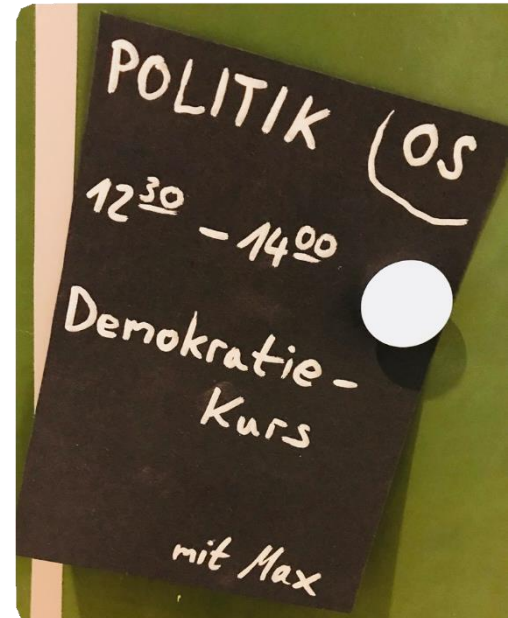 POLITIK OS
12³⁰ - 14⁰⁰
Demokratie-
Kurs
mit Max